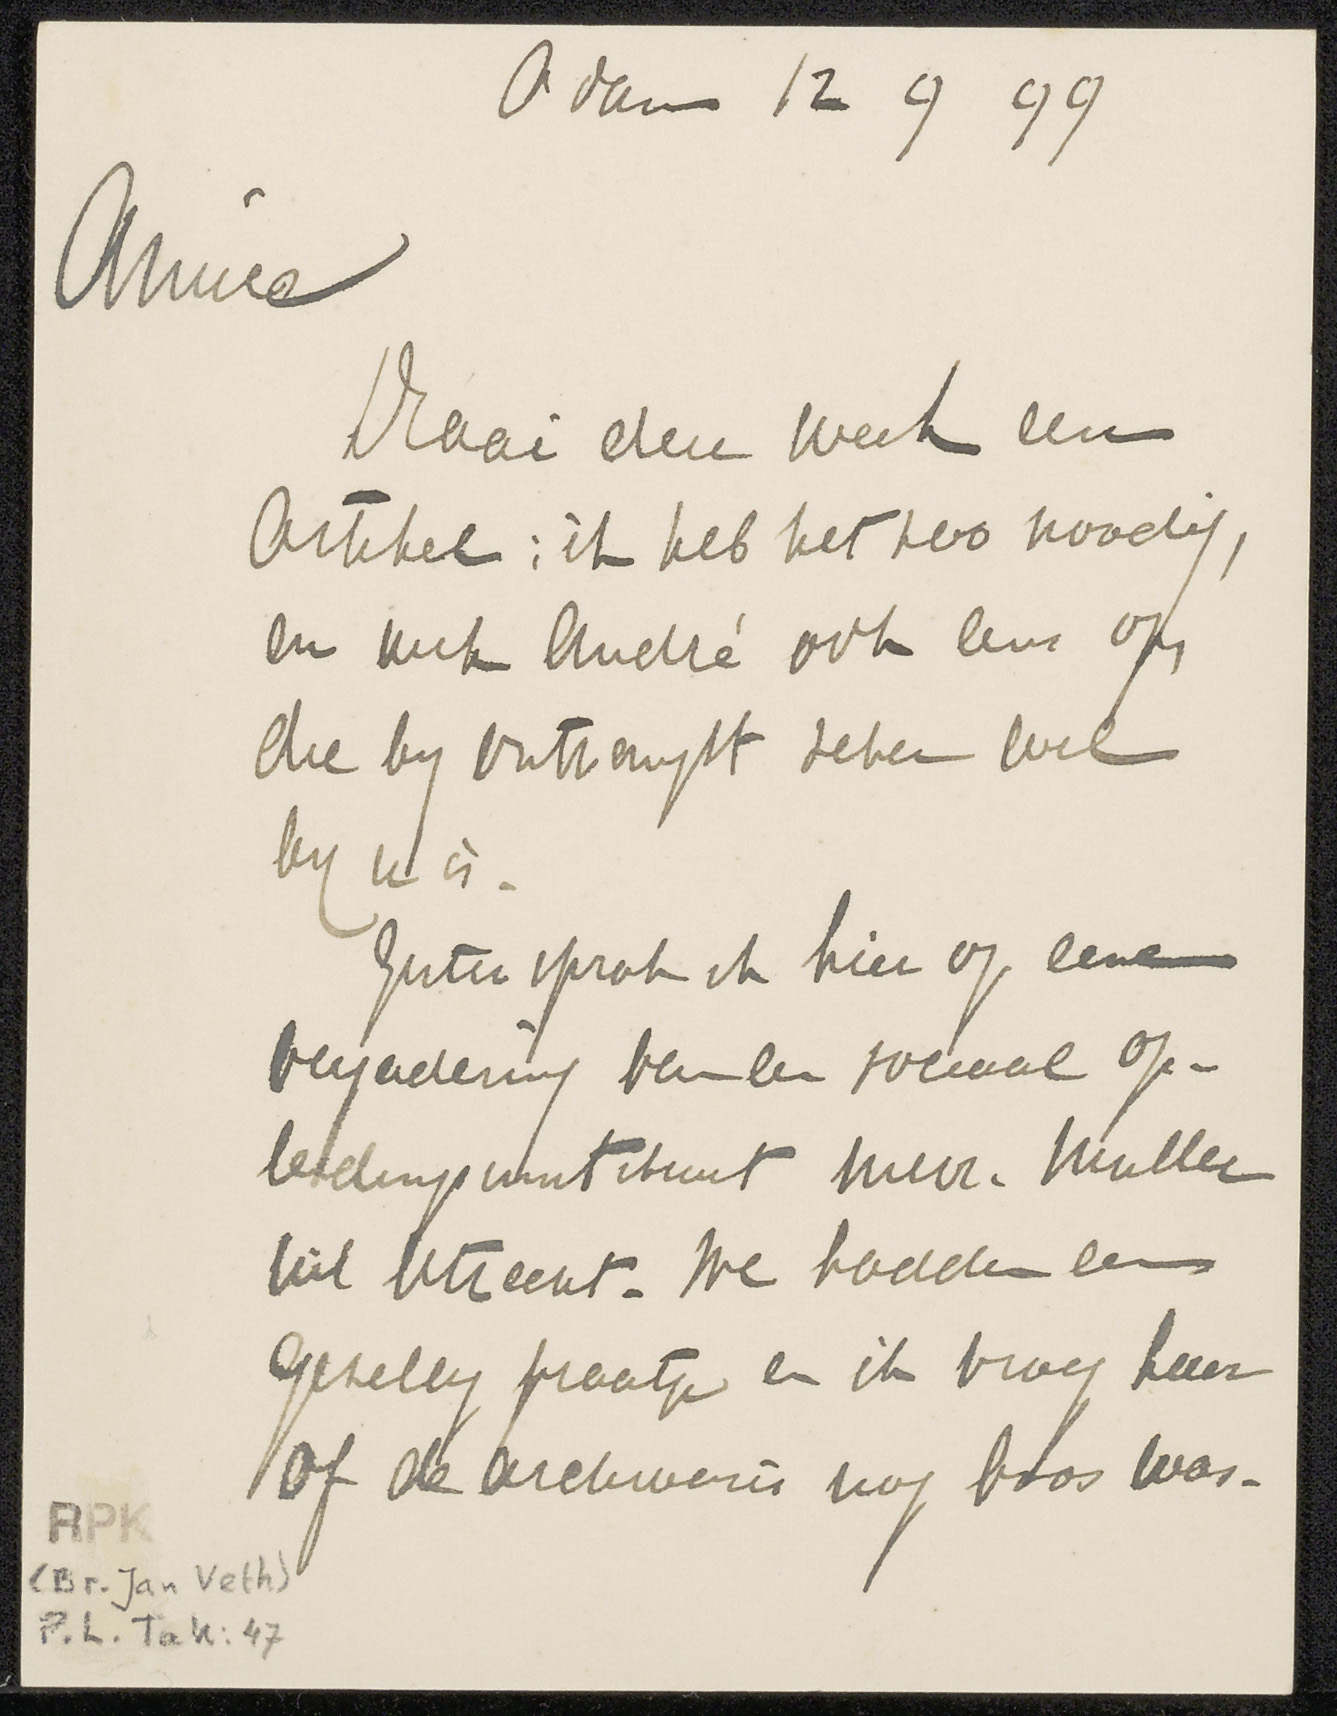 Adam 12 9 99
Amice
Draai deze week een
Artikel: ik heb het zoo noodig,
en wek André ook eens op,
die bij ontvangst zeker wel
bij u is.
Gister sprak ik hier op eene
vergadering van een sociaal op-
leidingsinstituut mevr. Muller
uit Utrecht. We hadden een
gezellig praatje en ik vroeg haar
of de archivaris nog boos was.
RPK
(Br. Jan Veth)
P.L. Tak: 47